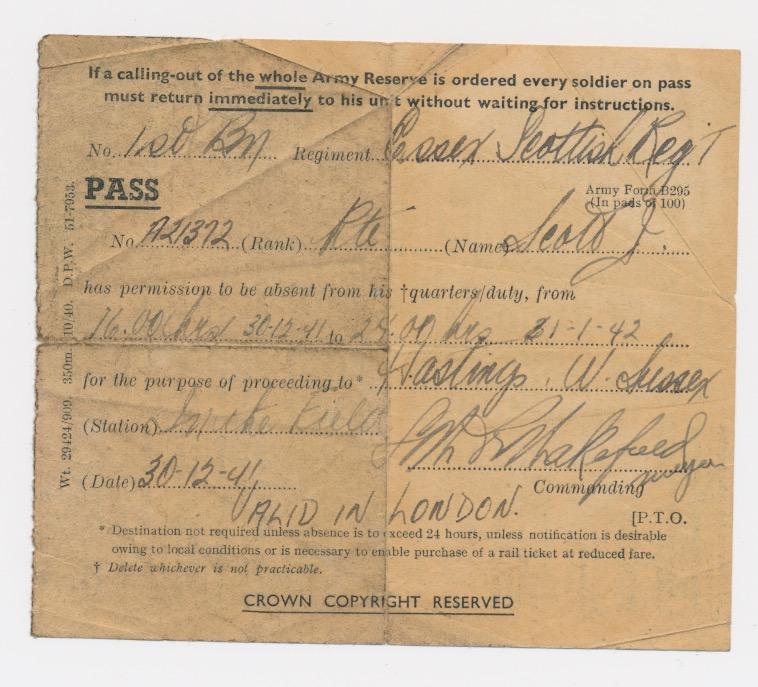 If a calling-out of the whole Army Reserve is ordered every soldier on pass
must return immediately to his unit without waiting for instructions.
No. 1st Bn Regiment Essex Scottish Reg'T
PASS
Army Form B295
(In pads of 100)
No. A21372 (Rank) Pte (Name) Scott J.
has permission to be absent from his †quarters/duty, from
16.00 hrs 30-12-41 to 24.00 hrs 31-1-42
for the purpose of proceeding to* Hastings, W. Sussex
(Station) in the Field
(Date) 30-12-41
Wakefield
Major
Commanding
VALID IN LONDON.
[P.T.O.
* Destination not required unless absence is to exceed 24 hours, unless notification is desirable
owing to local conditions or is necessary to enable purchase of a rail ticket at reduced fare.
† Delete whichever is not practicable.
CROWN COPYRIGHT RESERVED
Wt. 29424/909. 350m. 10/40. D.P.W. 51-7953.